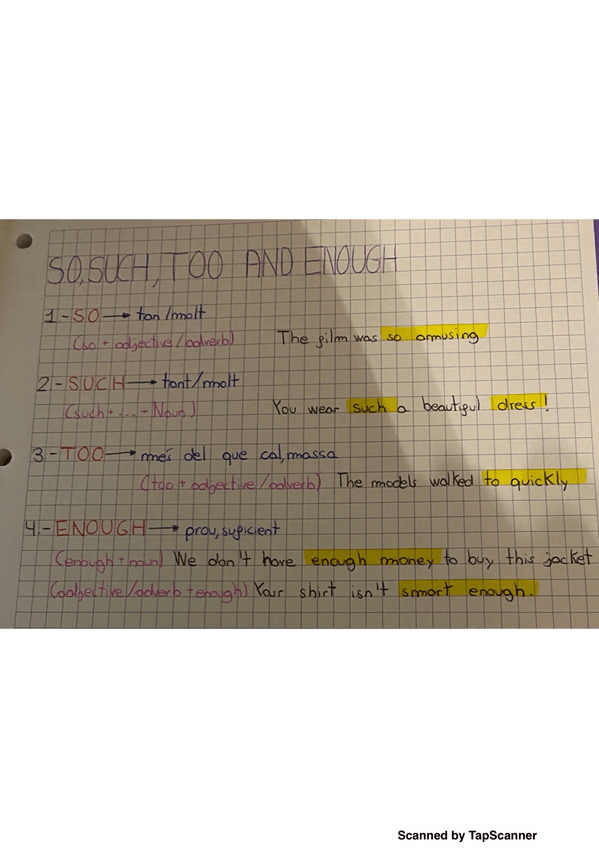 SO, SUCH, TOO AND ENOUGH
1-SO → tan/molt
(so + adjective/adverb) The film was so amusing
2-SUCH → tant/molt
(such + ... + Noun) You wear such a beautiful dress!
3-TOO → més del que cal, massa
(too + adjective/adverb) The models walked to quickly
4.-ENOUGH → prou, suficient
(enough + noun) We don't have enough money to buy this jacket
(adjective/adverb + enough) Your shirt isn't smart enough.
Scanned by TapScanner